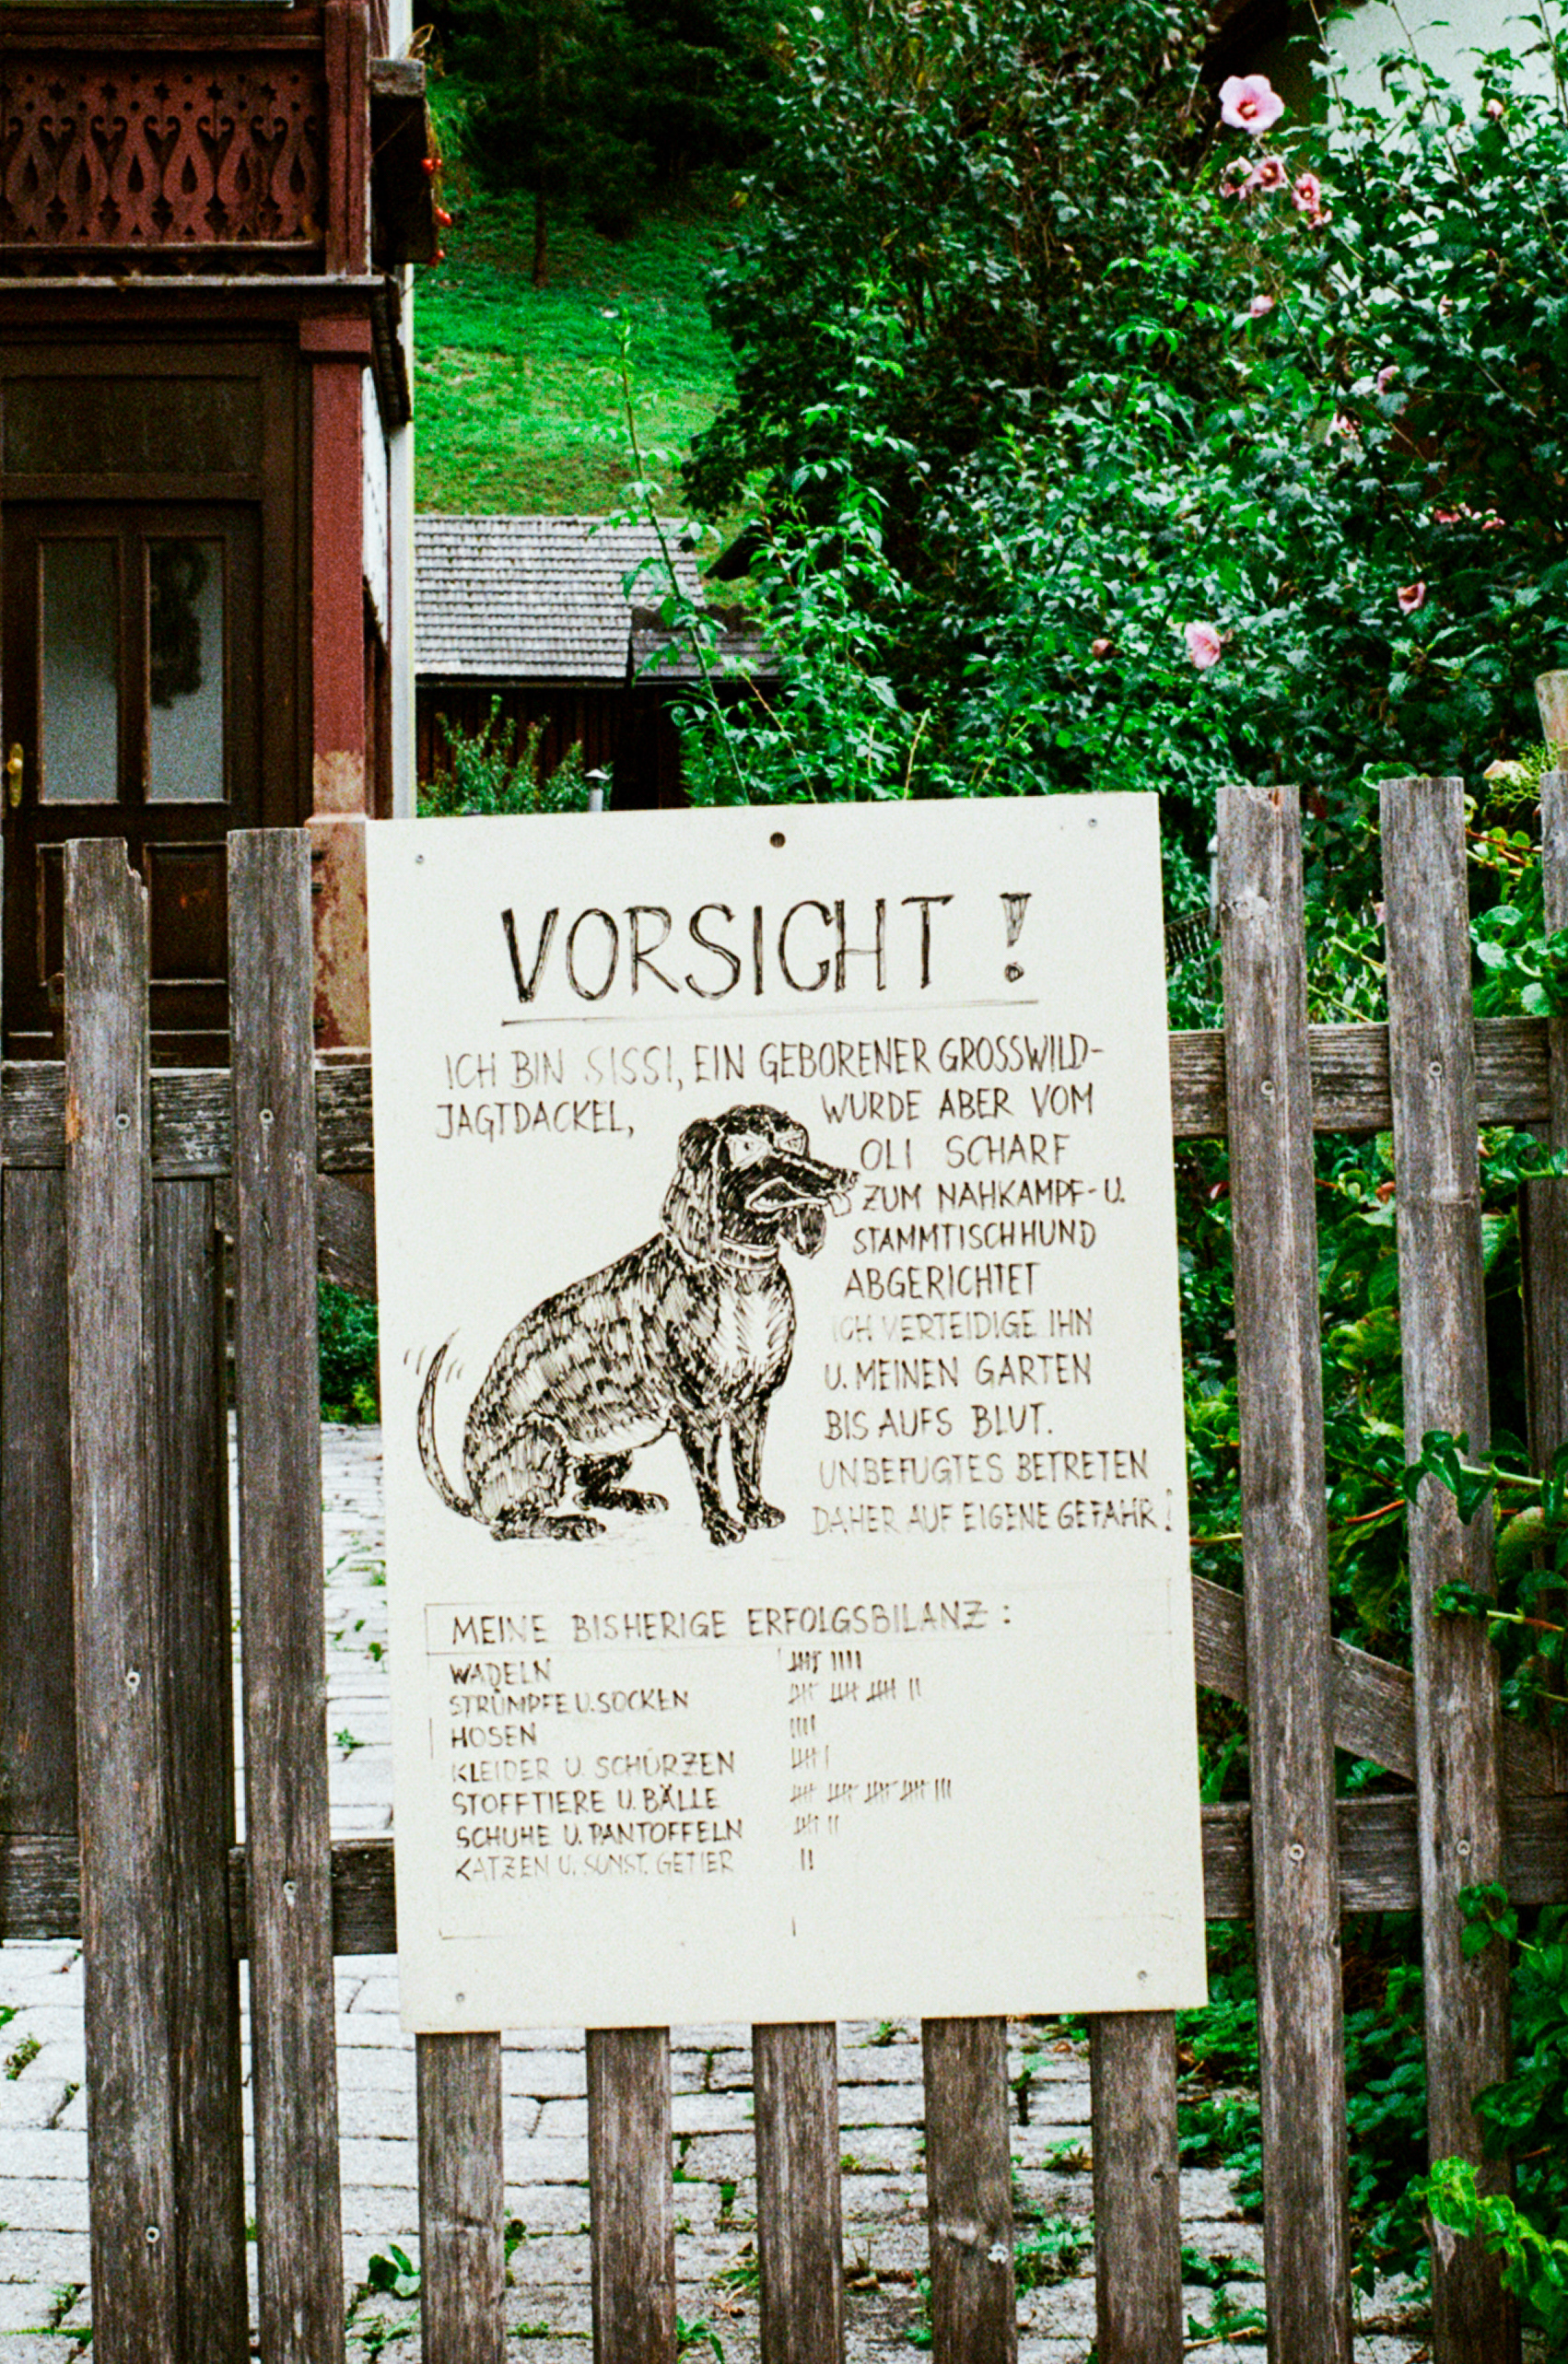 VORSICHT !
ICH BIN SISSI, EIN GEBORENER GROSSWILD-
JAGTDACKEL, WURDE ABER VOM
OLI SCHARF
ZUM NAHKAMPF- U.
STAMMTISCHHUND
ABGERICHTET
ICH VERTEIDIGE IHN
U. MEINEN GARTEN
BIS AUFS BLUT.
UNBEFUGTES BETRETEN
DAHER AUF EIGENE GEFAHR!
MEINE BISHERIGE ERFOLGSBILANZ :
WADELN
STRÜMPFE U. SOCKEN
HOSEN
KLEIDER U. SCHÜRZEN
STOFFTIERE U. BÄLLE
SCHUHE U. PANTOFFELN
KATZEN U. SONST. GETIER